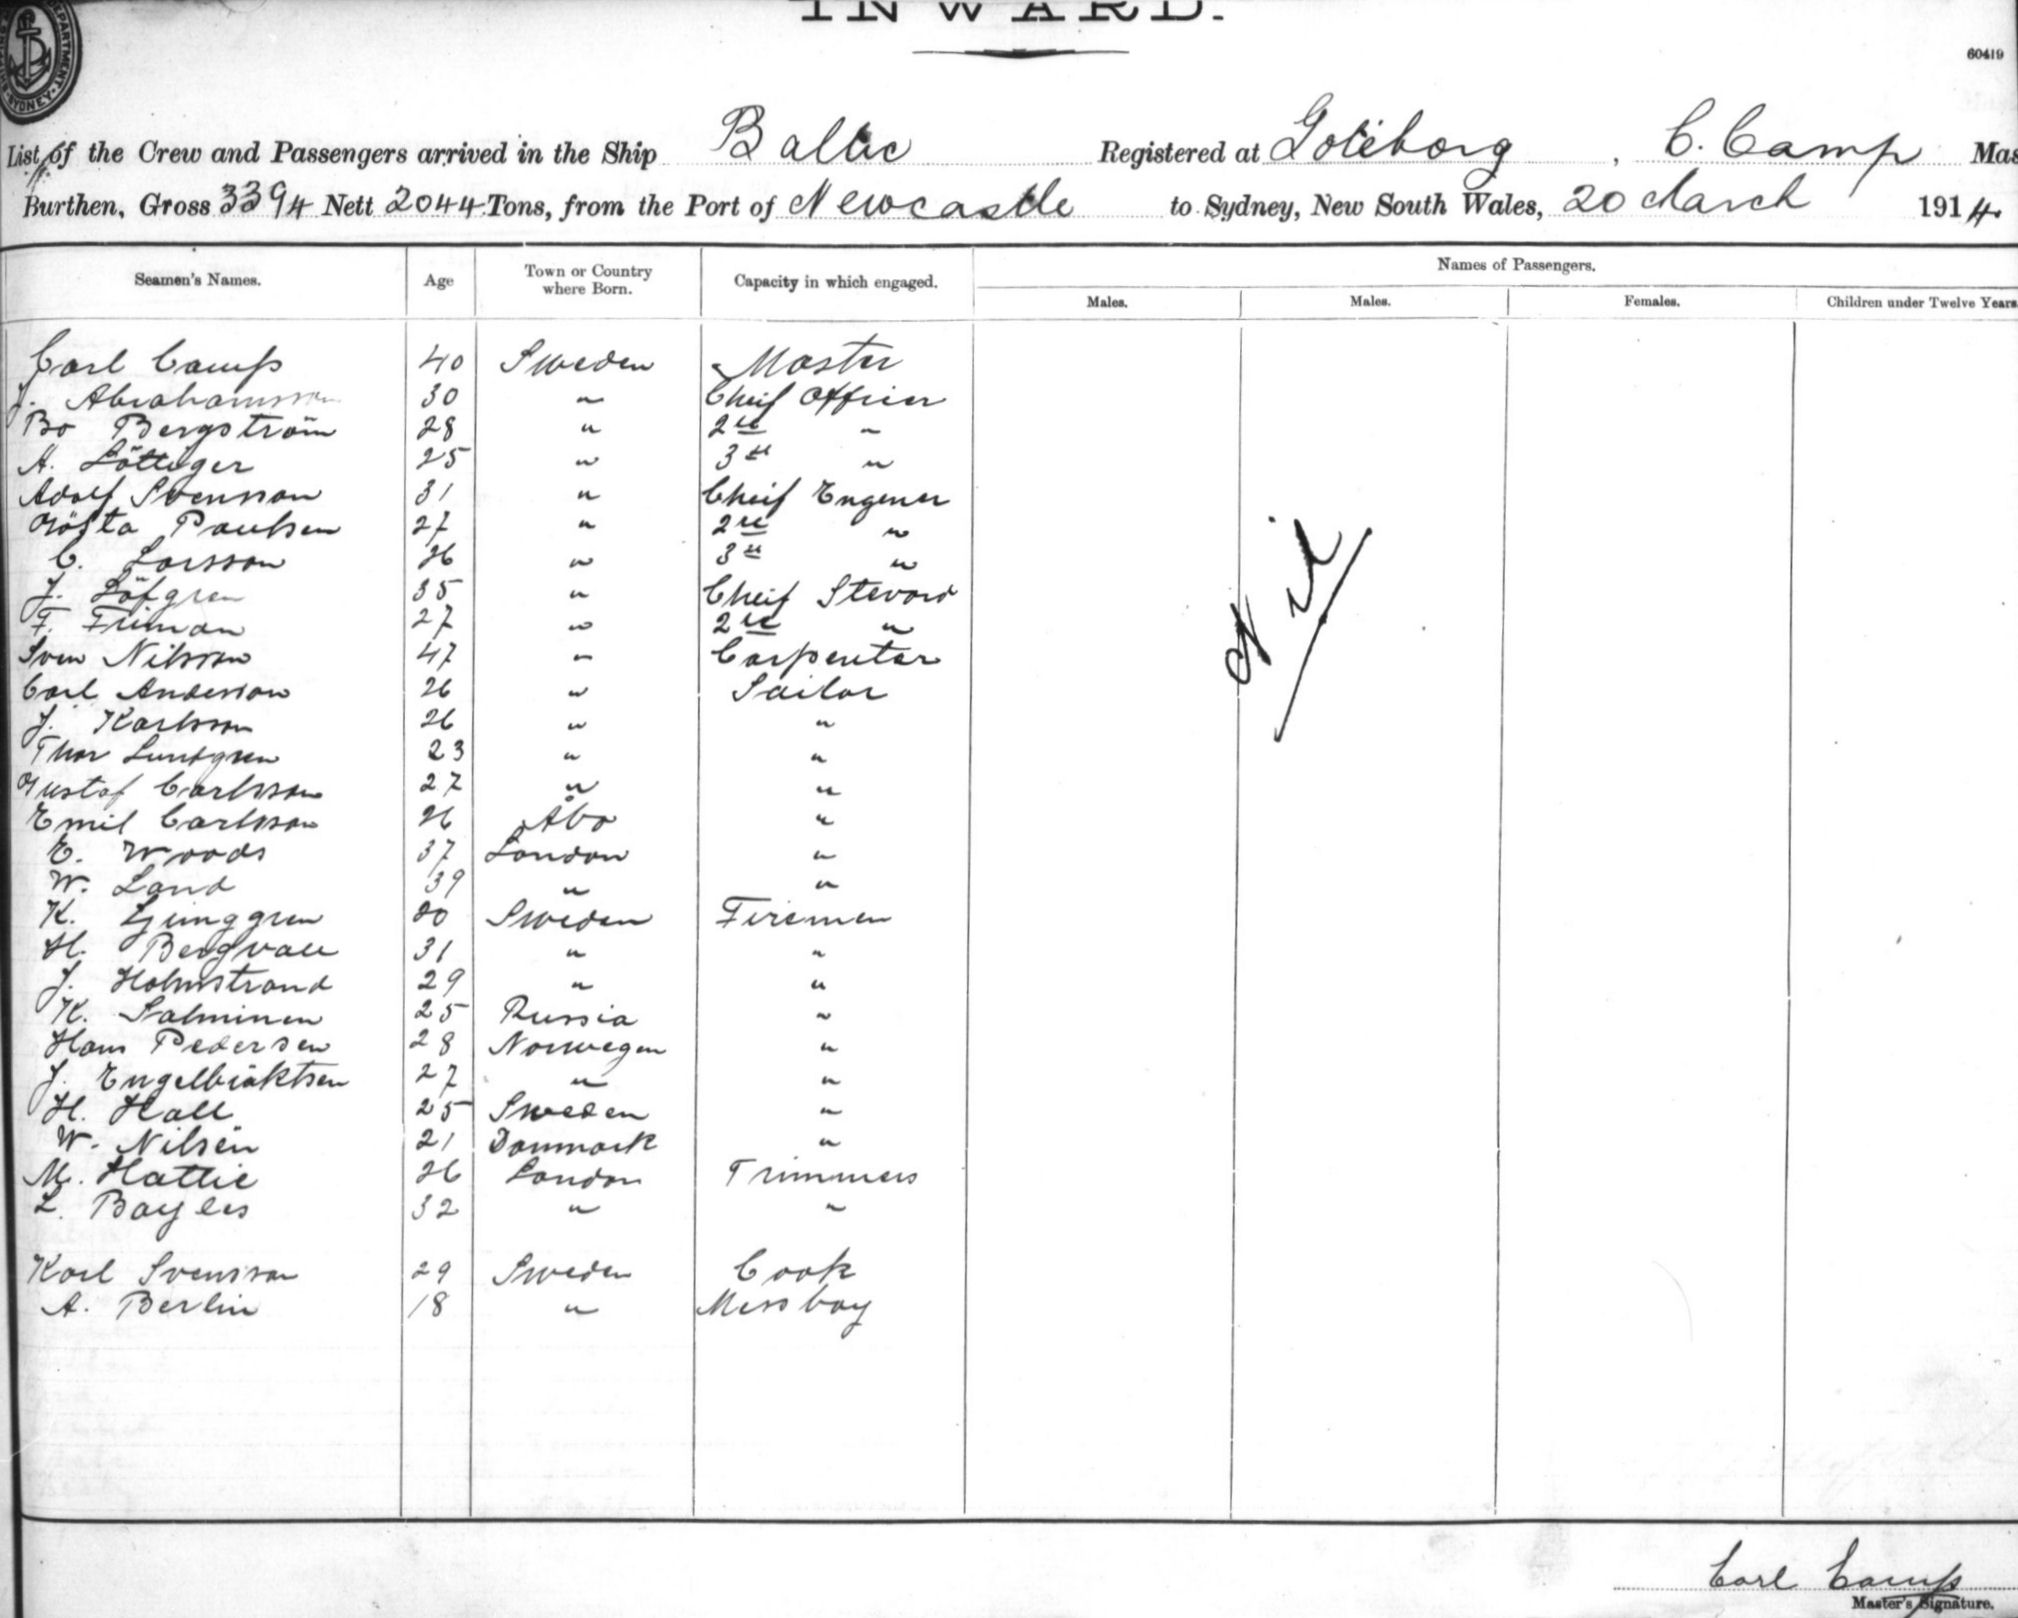 INWARD.
60419
List of the Crew and Passengers arrived in the Ship Baltic Registered at Göteborg, C. Camp Mas
Burthen, Gross 3394 Nett 2044 Tons, from the Port of Newcastle to Sydney, New South Wales, 20 March 1914.
Seamen's Names. Age Town or Country where Born. Capacity in which engaged. Names of Passengers.
Males. Males. Females. Children under Twelve Years
Carl Camp 40 Sweden Master
J. Abrahamsson 30 " Cheif Officer
Bo Bergström 28 " 2nd "
A. Löttiger 25 " 3rd "
Adolf Svensson 31 " Cheif Engener
Gösta Paulsen 27 " 2nd "
C. Larsson 26 " 3rd "
J. Löfgren 35 " Cheif Steward
F. Friman 27 " 2nd "
Sven Nilsson 47 " Carpenter
Carl Anderson 26 " Sailor
J. Karlsson 26 " "
Thor Lundgren 23 " "
Gustaf Carlsson 27 " "
Emil Carlsson 26 Åbo "
E. Woods 37 London "
W. Land 39 " "
K. Ljunggren 20 Sweden Firemen
H. Bergvall 31 " "
J. Holmstrand 29 " "
K. Salminen 25 Russia "
Hans Pedersen 28 Norwegen "
J. Engelbräktsen 27 " "
H. Hall 25 Sweden "
W. Nilsén 21 Danmark "
M. Hattie 26 London Trimmers
L. Bayles 32 " "
Karl Svensson 29 Sweden Cook
A. Berlin 18 " Messboy
Nil
Carl Camp
Master's Signature.